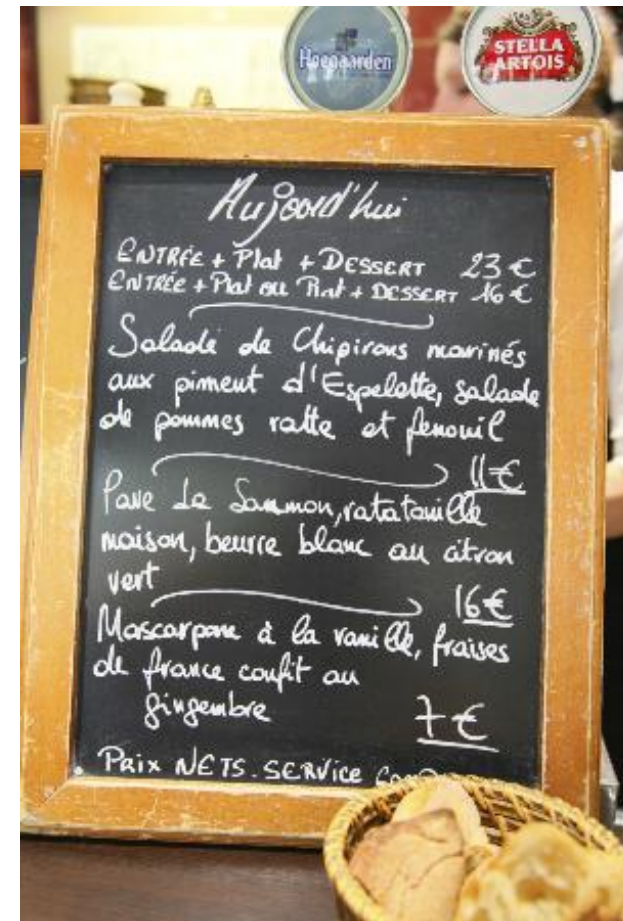 Hoegaarden
STELLA
ARTOIS
Aujourd'hui
ENTRÉE + Plat + DESSERT 23 €
ENTRÉE + Plat ou Plat + DESSERT 16 €
Salade de Chipirons marinés
aux piment d'Espelette, salade
de pommes ratte et fenouil
11 €
Pavé de Saumon, ratatouille
maison, beurre blanc au citron
vert
16 €
Mascarpone à la vanille, fraises
de france confit au
gingembre
7 €
Prix NETS. SERVICE